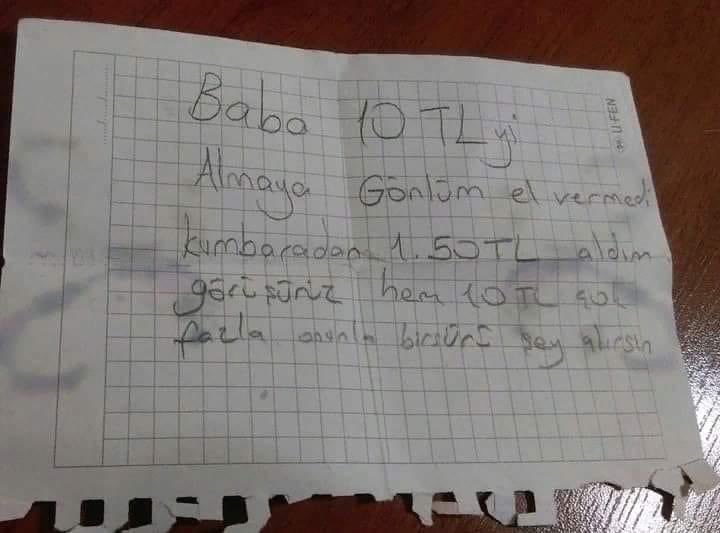 Baba 10 TL yi
Almaya Gönlüm el vermedi
kumbaradan 1.50TL aldım
görüşürüz hem 10 TL çok
fazla onunla birsürü şey alırsın
U-FEN